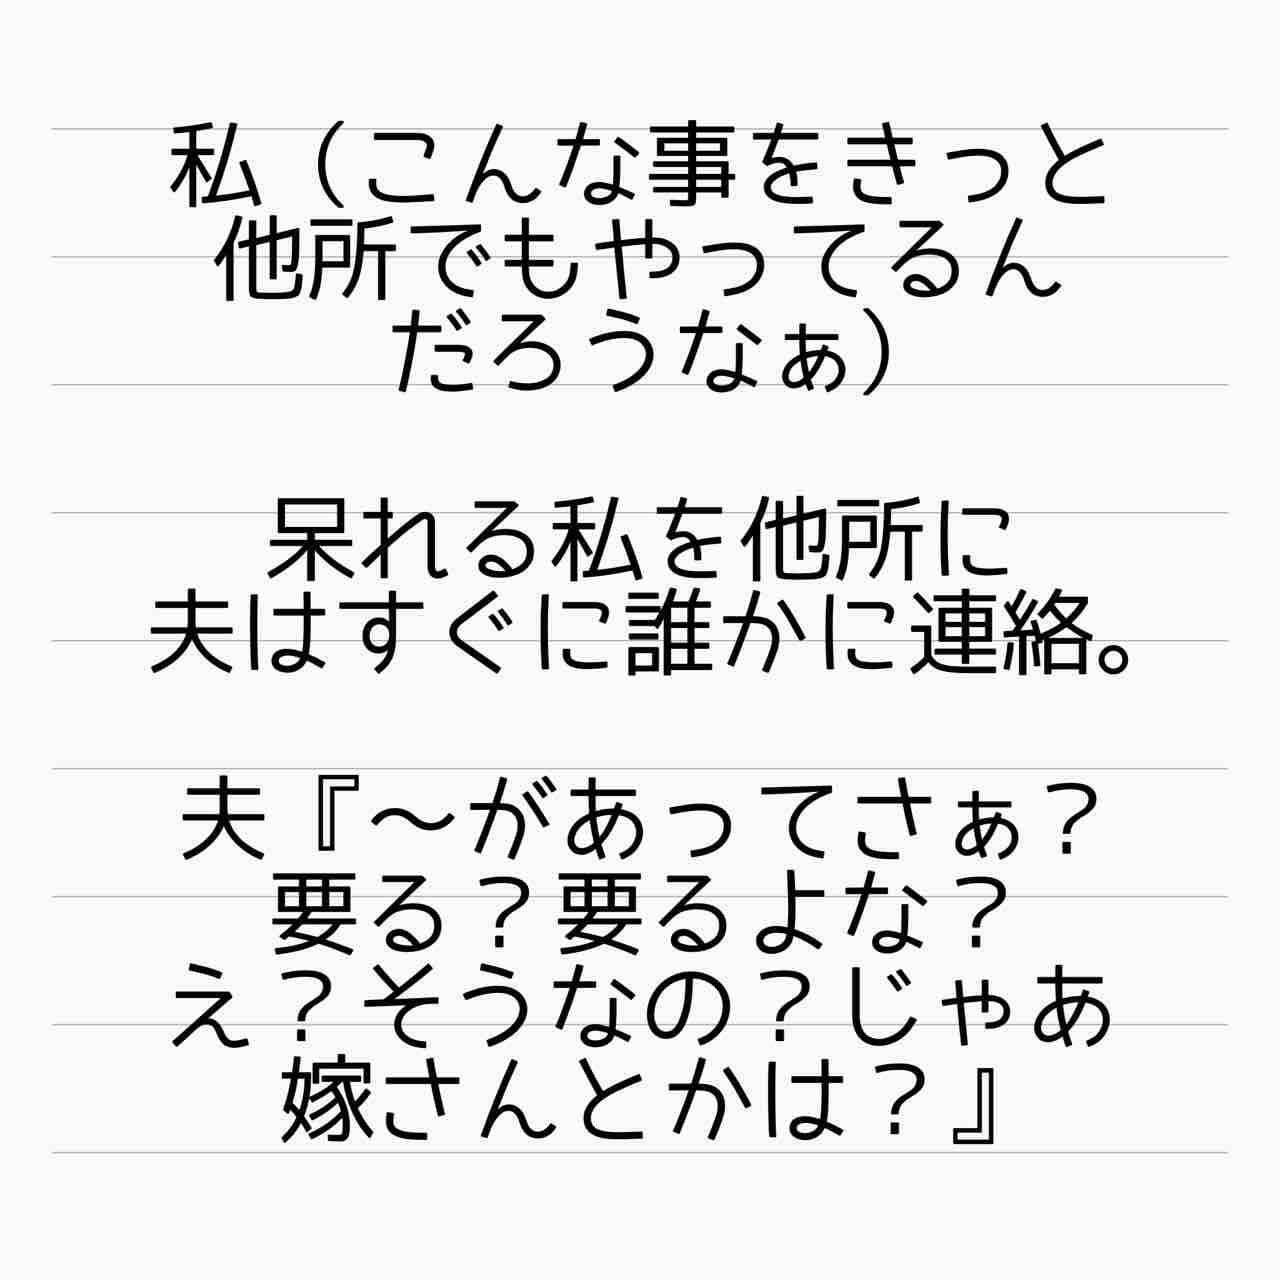 私（こんな事をきっと
他所でもやってるん
だろうなぁ）
呆れる私を他所に
夫はすぐに誰かに連絡。
夫『〜があってさぁ？
要る？要るよな？
え？そうなの？じゃあ
嫁さんとかは？』